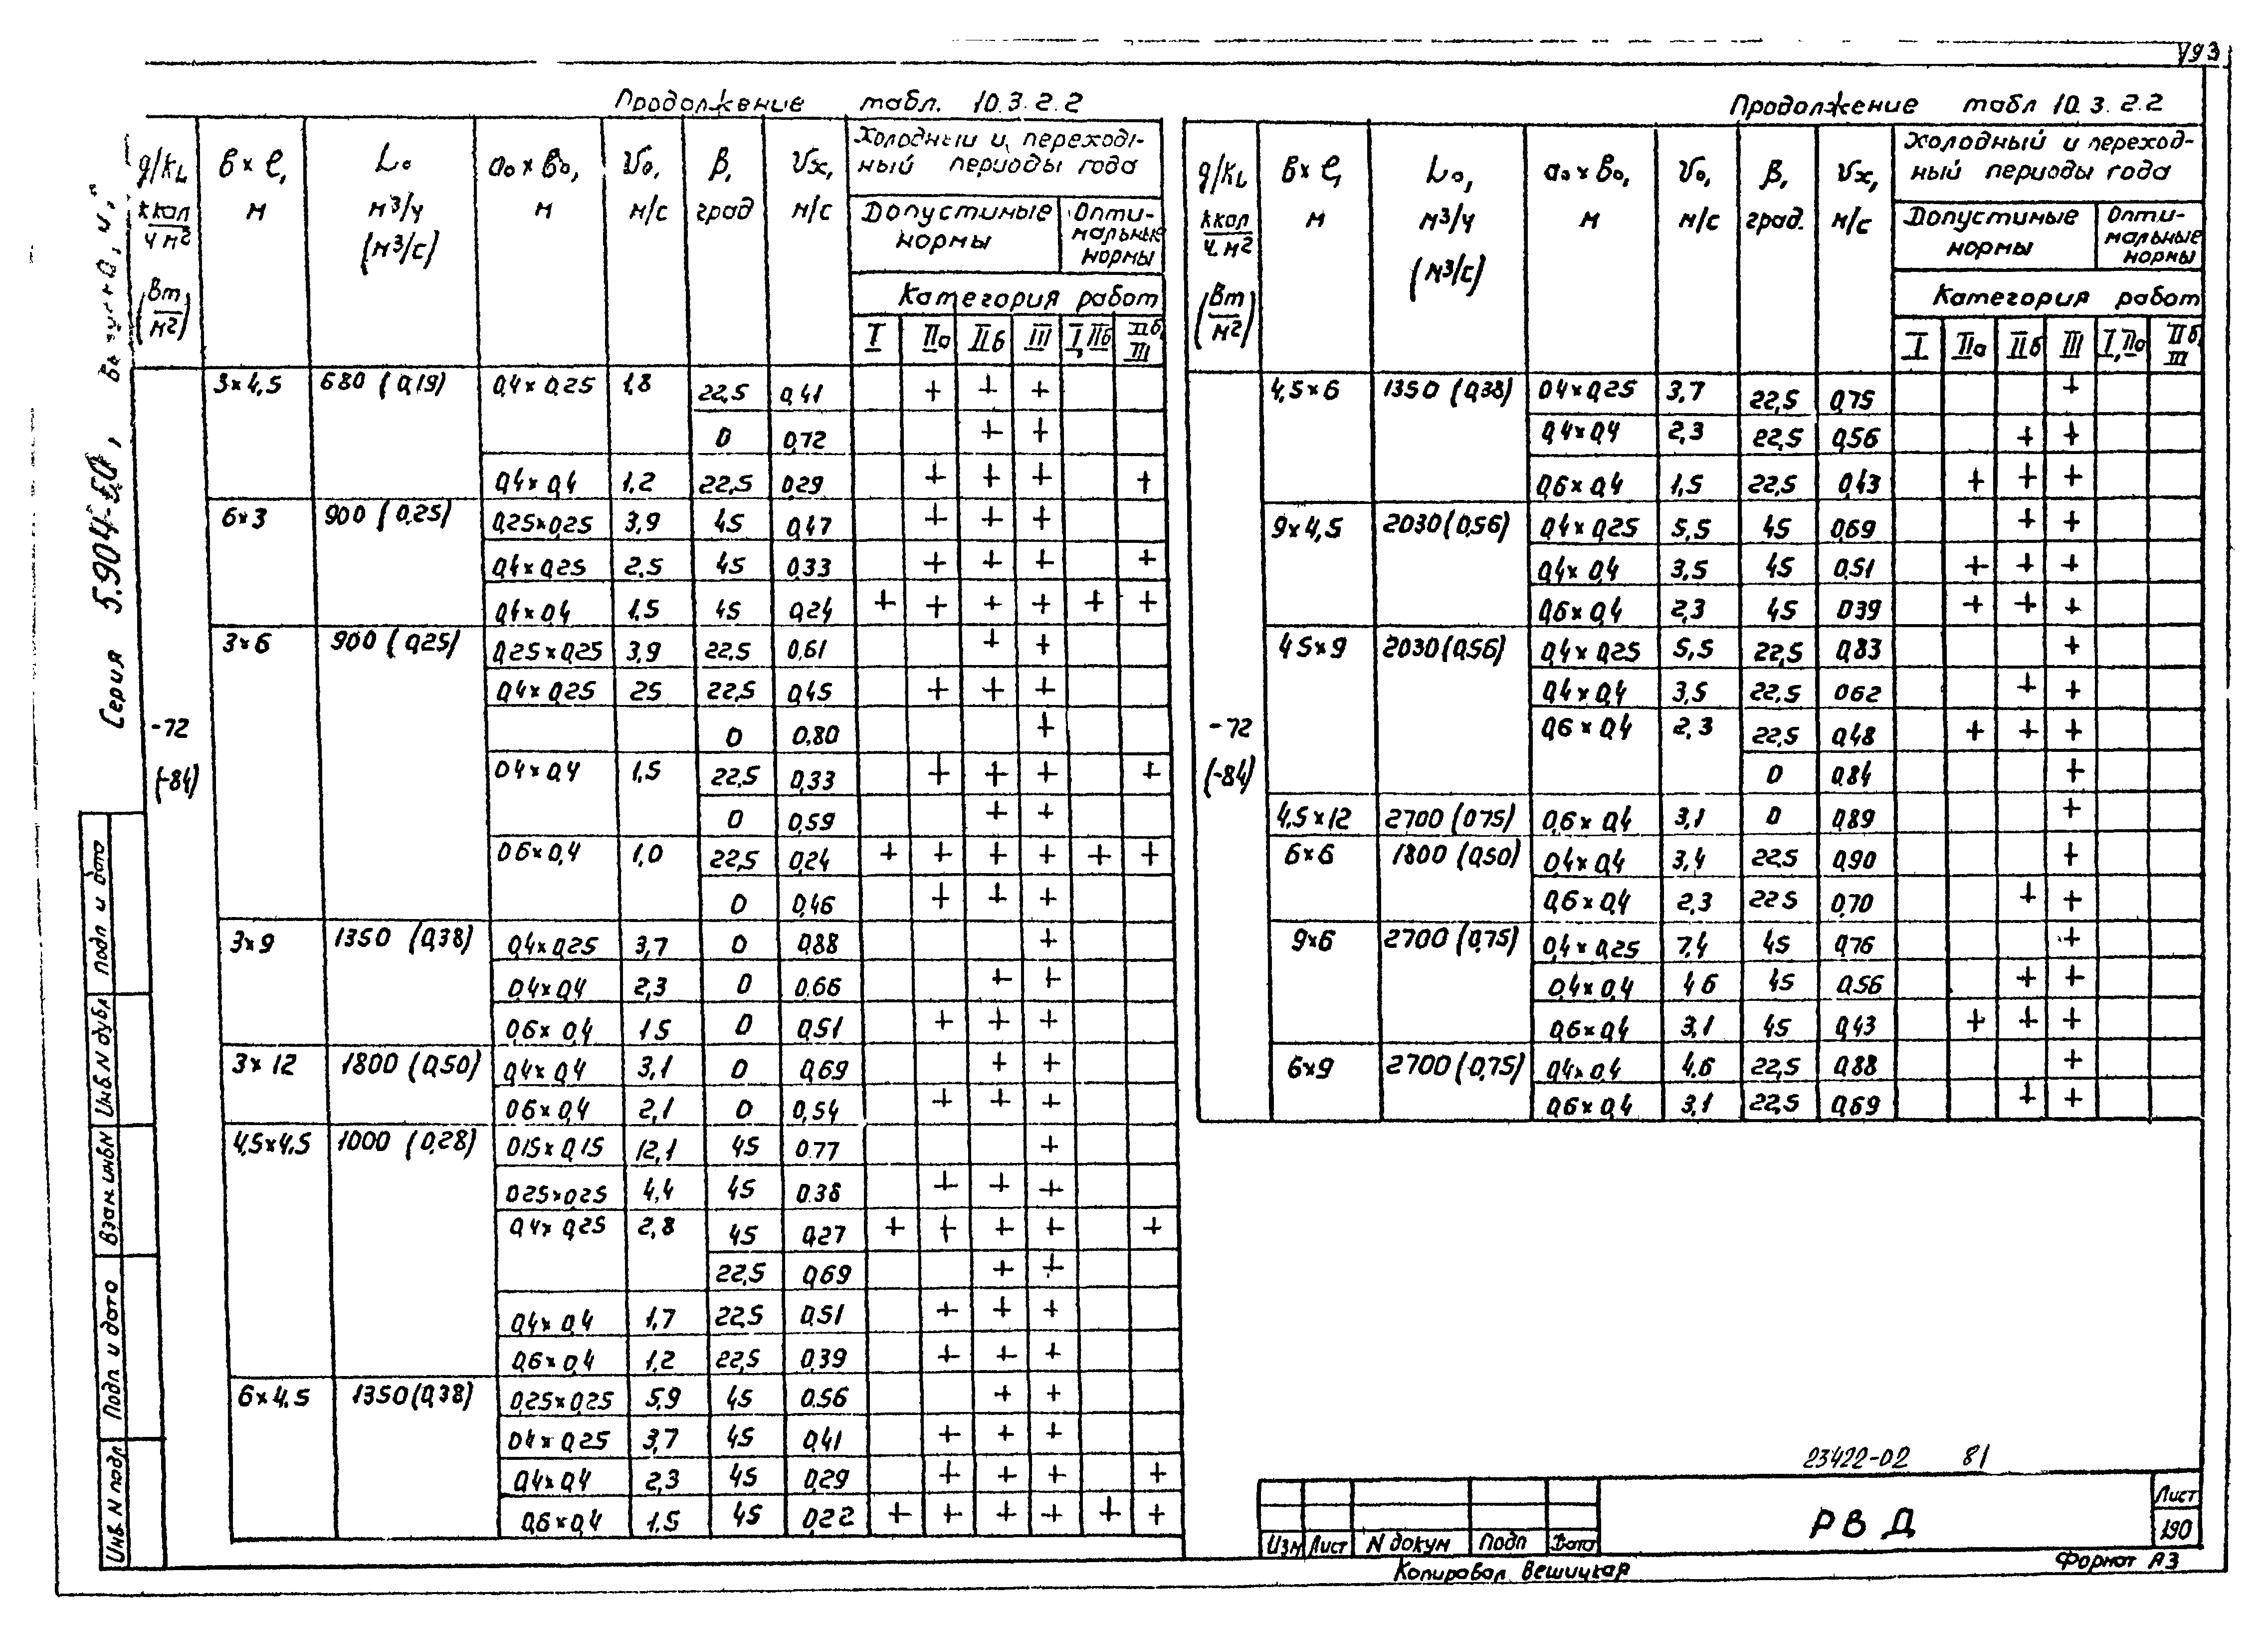 193
Продолжение табл. 10.3.2.2
g/kL ккал/ч м² (Вт/м²) | в × ℓ, м | L₀ м³/ч (м³/с) | a₀ × в₀, м | V₀, м/с | β, град | Vx, м/с | Холодный и переход-ный периоды года
Допустимые нормы | Опти-мальные нормы
Категория работ
I | IIа | IIб | III | I, IIб | IIб, III
-72 (-84)
3×4,5 | 680 (0,19) | 0,4×0,25 | 1,8 | 22,5 | 0,41 | | + | + | + | |
0 | 0,72 | | | + | + | |
0,4×0,4 | 1,2 | 22,5 | 0,29 | | + | + | + | | +
6×3 | 900 (0,25) | 0,25×0,25 | 3,9 | 45 | 0,47 | | + | + | + | |
0,4×0,25 | 2,5 | 45 | 0,33 | | + | + | + | | +
0,4×0,4 | 1,5 | 45 | 0,24 | + | + | + | + | + | +
3×6 | 900 (0,25) | 0,25×0,25 | 3,9 | 22,5 | 0,61 | | | + | + | |
0,4×0,25 | 25 | 22,5 | 0,45 | | + | + | + | |
0 | 0,80 | | | | + | |
0,4×0,4 | 1,5 | 22,5 | 0,33 | | + | + | + | | +
0 | 0,59 | | | + | + | |
0,6×0,4 | 1,0 | 22,5 | 0,24 | + | + | + | + | + | +
0 | 0,46 | | + | + | + | |
3×9 | 1350 (0,38) | 0,4×0,25 | 3,7 | 0 | 0,88 | | | | + | |
0,4×0,4 | 2,3 | 0 | 0,66 | | | + | + | |
0,6×0,4 | 1,5 | 0 | 0,51 | | + | + | + | |
3×12 | 1800 (0,50) | 0,4×0,4 | 3,1 | 0 | 0,69 | | | + | + | |
0,6×0,4 | 2,1 | 0 | 0,54 | | + | + | + | |
4,5×4,5 | 1000 (0,28) | 0,15×0,15 | 12,1 | 45 | 0.77 | | | | + | |
0,25×0,25 | 4,4 | 45 | 0.38 | | + | + | + | |
0,4×0,25 | 2,8 | 45 | 0,27 | + | + | + | + | | +
22,5 | 0,69 | | | + | + | |
0,4×0,4 | 1,7 | 22,5 | 0,51 | | + | + | + | |
0,6×0,4 | 1,2 | 22,5 | 0,39 | | + | + | + | |
6×4,5 | 1350 (0,38) | 0,25×0,25 | 5,9 | 45 | 0.56 | | | + | + | |
0,4×0,25 | 3,7 | 45 | 0,41 | | + | + | + | |
0,4×0,4 | 2,3 | 45 | 0,29 | | + | + | + | | +
0,6×0,4 | 1,5 | 45 | 0,22 | + | + | + | + | + | +
Продолжение табл 10.3.2.2
g/kL ккал/ч.м² (Вт/м²) | в × ℓ, м | L₀, м³/ч (м³/с) | a₀ × в₀, м | V₀, м/с | β, град. | Vx, м/с | Холодный и переход-ный периоды года
Допустимые нормы | Опти-мальные нормы
Категория работ
I | IIа | IIб | III | I, IIа | IIб, III
-72 (-84)
4,5×6 | 1350 (0,38) | 0,4×0,25 | 3,7 | 22,5 | 0,75 | | | | + | |
0,4×0,4 | 2,3 | 22,5 | 0,56 | | | + | + | |
0,6×0,4 | 1,5 | 22,5 | 0,43 | | + | + | + | |
9×4,5 | 2030 (0,56) | 0,4×0,25 | 5,5 | 45 | 0,69 | | | + | + | |
0,4×0,4 | 3,5 | 45 | 0,51 | | + | + | + | |
0,6×0,4 | 2,3 | 45 | 0,39 | | + | + | + | |
4,5×9 | 2030 (0,56) | 0,4×0,25 | 5,5 | 22,5 | 0,83 | | | | + | |
0,4×0,4 | 3,5 | 22,5 | 0,62 | | | + | + | |
0,6×0,4 | 2,3 | 22,5 | 0,48 | | + | + | + | |
0 | 0,84 | | | | + | |
4,5×12 | 2700 (0,75) | 0,6×0,4 | 3,1 | 0 | 0,89 | | | | + | |
6×6 | 1800 (0,50) | 0,4×0,4 | 3,4 | 22,5 | 0,90 | | | | + | |
0,6×0,4 | 2,3 | 22,5 | 0,70 | | | + | + | |
9×6 | 2700 (0,75) | 0,4×0,25 | 7,4 | 45 | 0,76 | | | | + | |
0,4×0,4 | 4,6 | 45 | 0,56 | | | + | + | |
0,6×0,4 | 3,1 | 45 | 0,43 | | + | + | + | |
6×9 | 2700 (0,75) | 0,4×0,4 | 4,6 | 22,5 | 0,88 | | | | + | |
0,6×0,4 | 3,1 | 22,5 | 0,69 | | | + | + | |
Серия 5.904-50,
Подп и дата
Инв N дубл
Взам. инв N
Подп. и дата
Инв. N подл
23422-02 81
Изм Лист N докум Подп Дата
РВ Д
Лист
190
Копировал Вешицкая
Формат А3